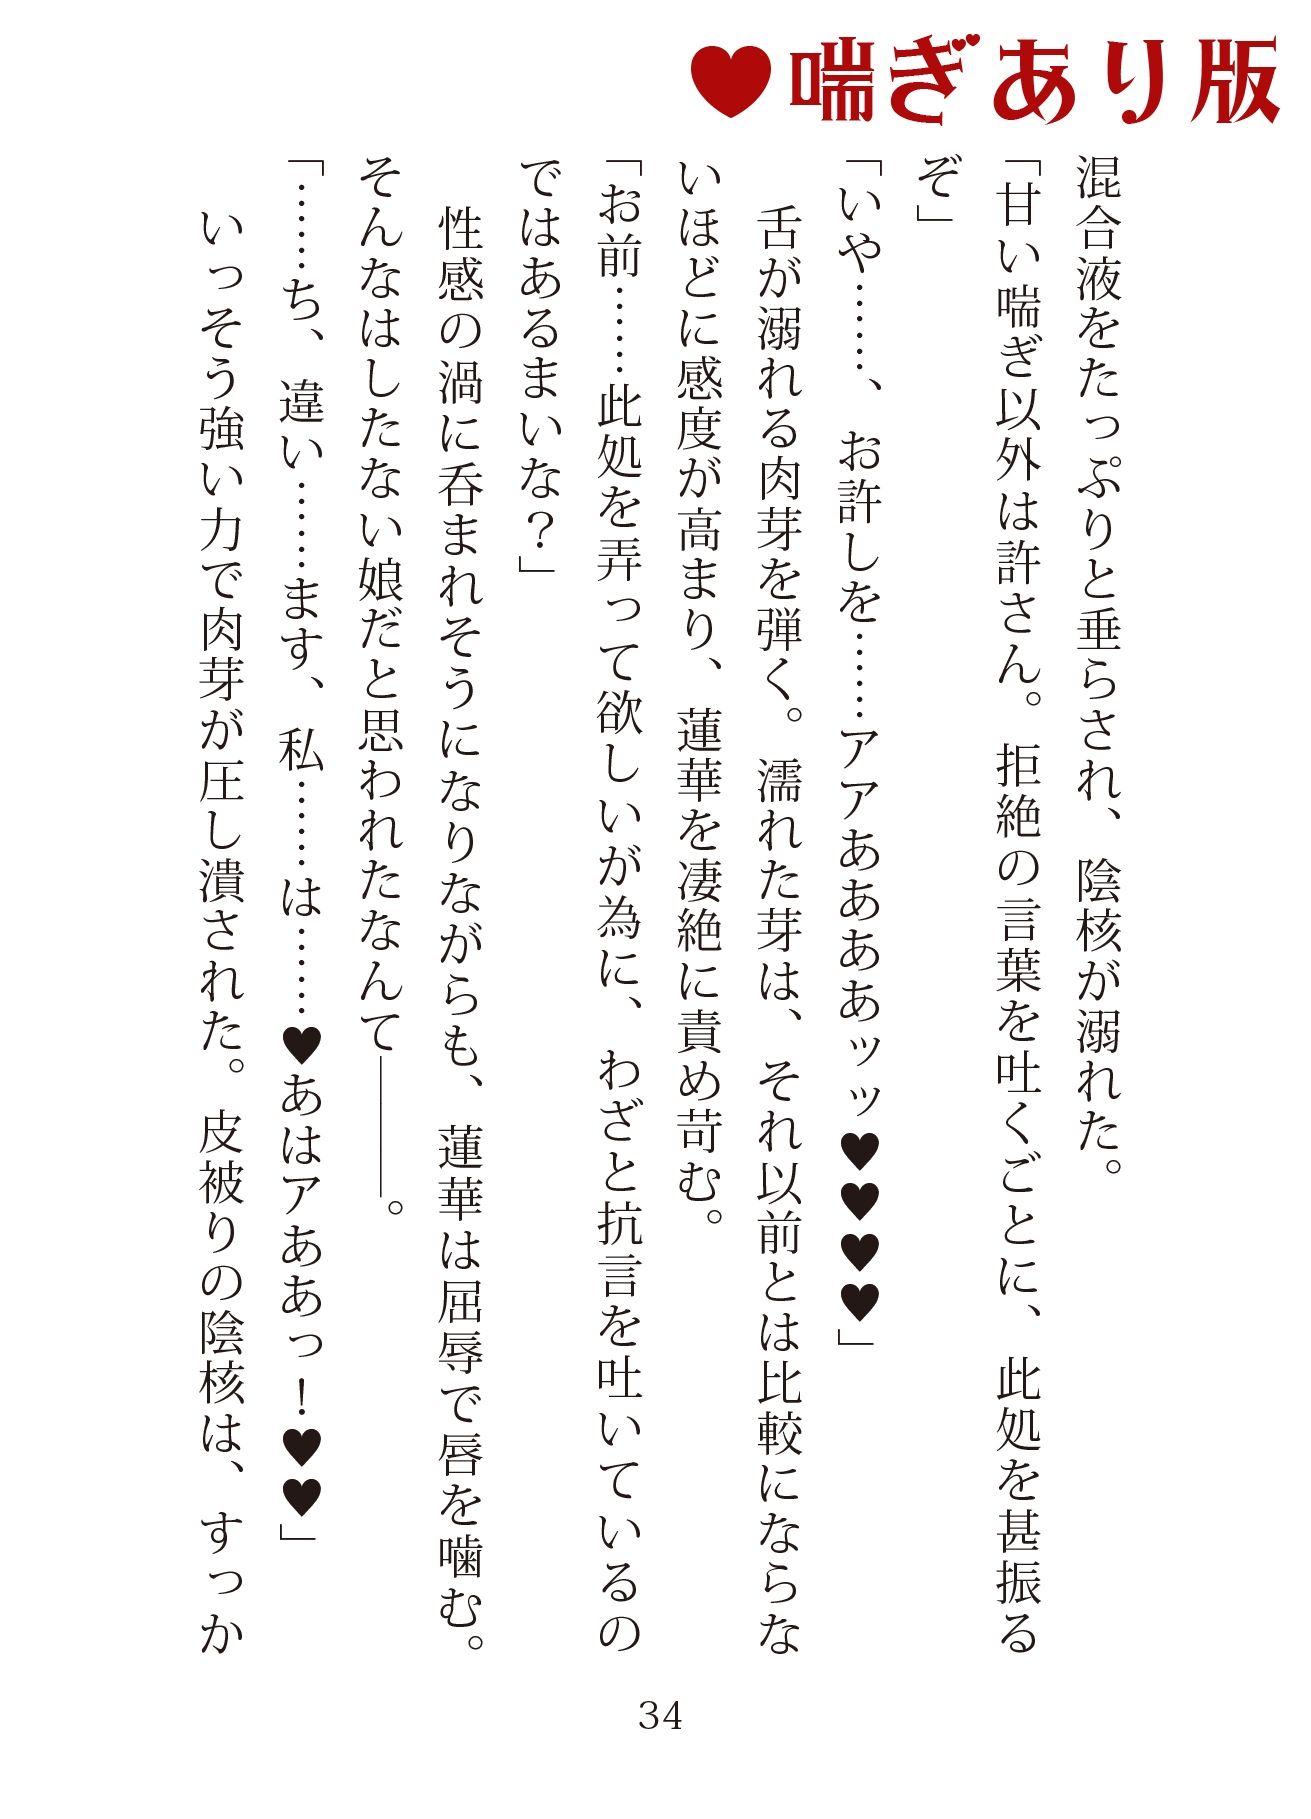 ♥喘ぎあり版
混合液をたっぷりと垂らされ、陰核が溺れた。
「甘い喘ぎ以外は許さん。拒絶の言葉を吐くごとに、此処を甚振る
ぞ」
「いや……、お許しを……アアああああッッ♥♥♥♥」
　舌が溺れる肉芽を弾く。濡れた芽は、それ以前とは比較にならな
いほどに感度が高まり、蓮華を凄絶に責め苛む。
「お前……此処を弄って欲しいが為に、わざと抗言を吐いているの
ではあるまいな？」
　性感の渦に呑まれそうになりながらも、蓮華は屈辱で唇を噛む。
そんなはしたない娘だと思われたなんて———。
「……ち、違い……ます、私……は……♥あはアああっ！♥♥」
　いっそう強い力で肉芽が圧し潰された。皮被りの陰核は、すっか
34